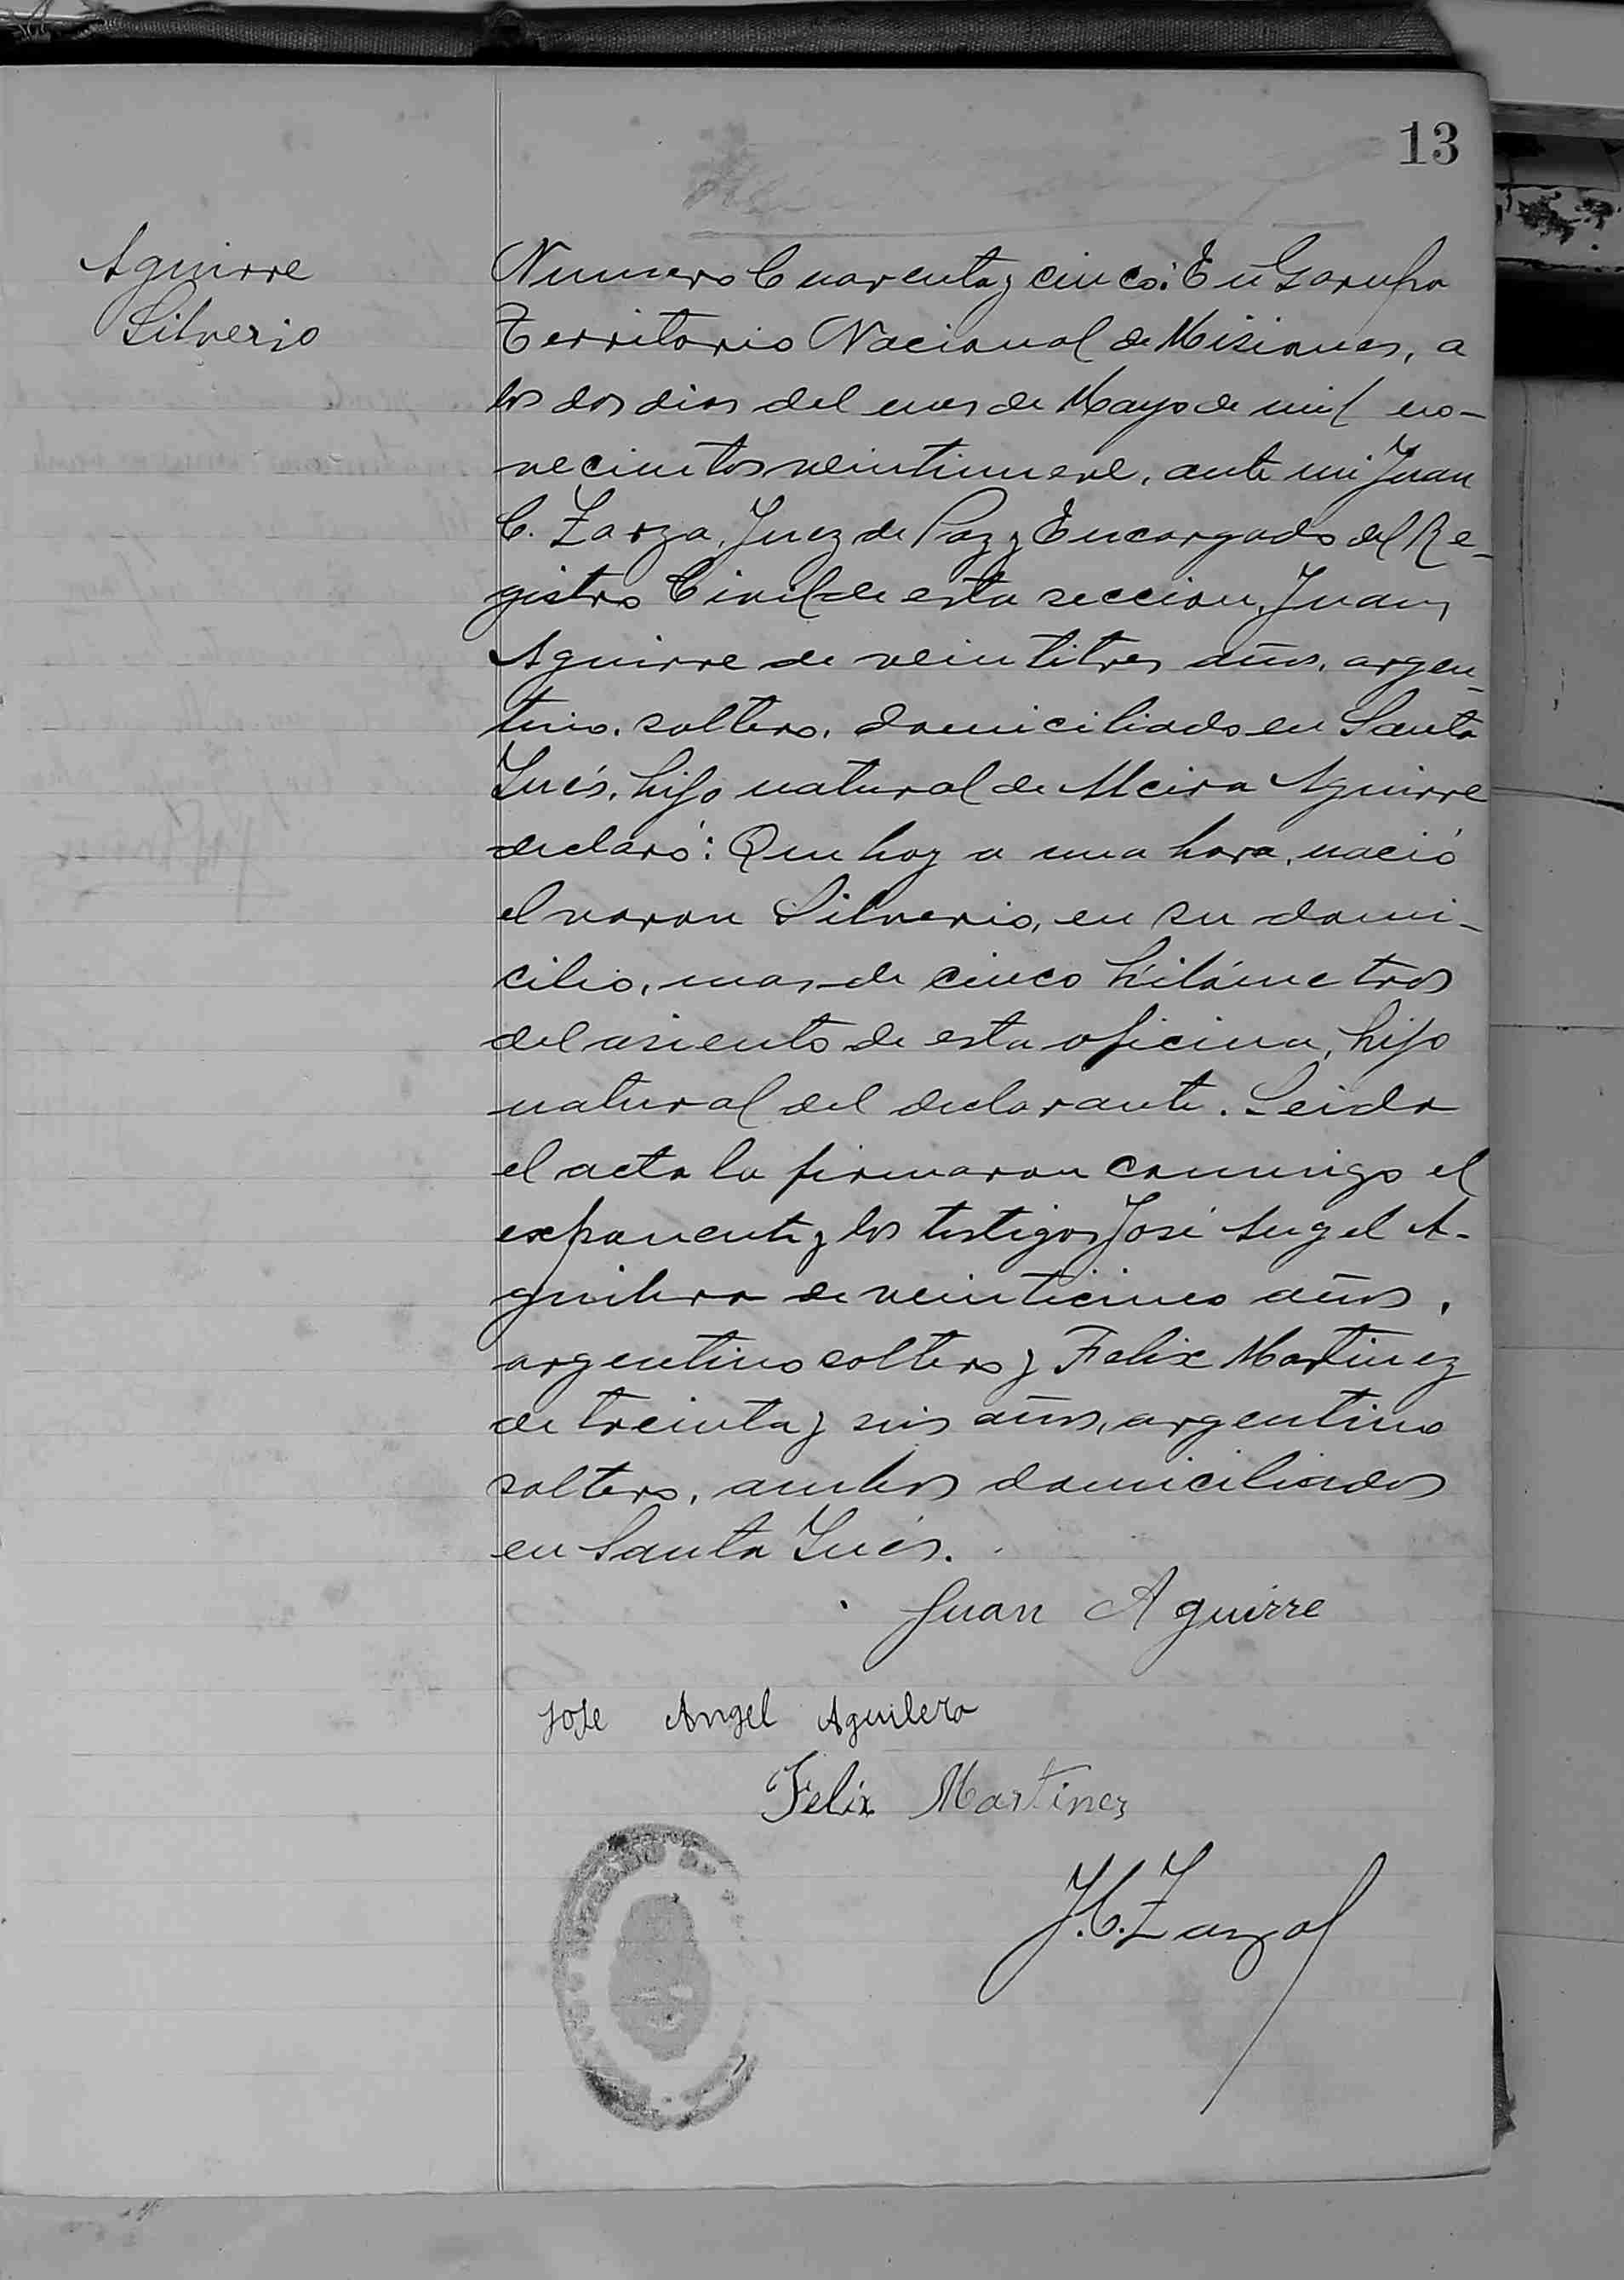 13
Aguirre
Silverio
Numero Cuarenta y cinco: En Garupa
Territorio Nacional de Misiones, a
los dos dias del mes de Mayo de mil no-
vecientos veintinueve, ante mi Juan
C. Zarza, Juez de Paz y Encargado del Re-
gistro Civil de esta seccion, Juan
Aguirre de veintitres años, argen-
tino, soltero, domiciliado en Santa
Inés, hijo natural de Alcira Aguirre
declaró: Que hoy a una hora, nació
el varon Silverio, en su domi-
cilio, mas de cinco kilómetros
del asiento de esta oficina, hijo
natural del declarante. Leida
el acta la firmaron conmigo el
exponente y los testigos José Angel A-
guilera de veinticinco años,
argentino soltero y Felix Martinez
de treinta y seis años, argentino
soltero, ambos domiciliados
en Santa Inés.
Juan Aguirre
Jose Angel Aguilera
Felix Martinez
J.C. Zarza